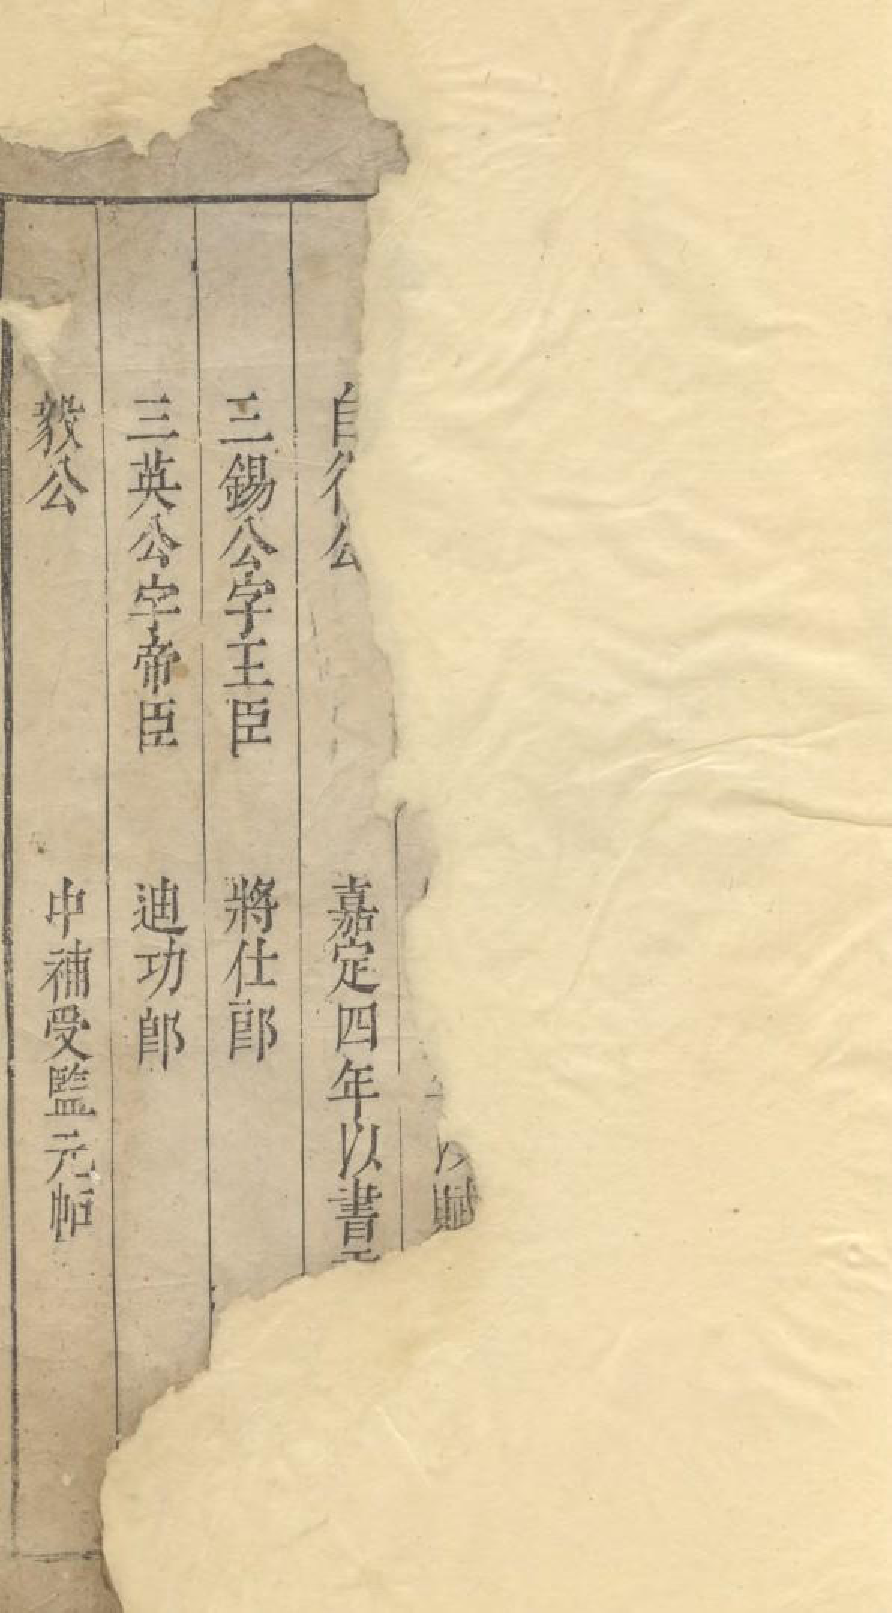 賦
自行公 嘉定四年以書
三錫公字王臣 將仕郎
三英公字帝臣 迪功郎
毅公 中補受監元帖